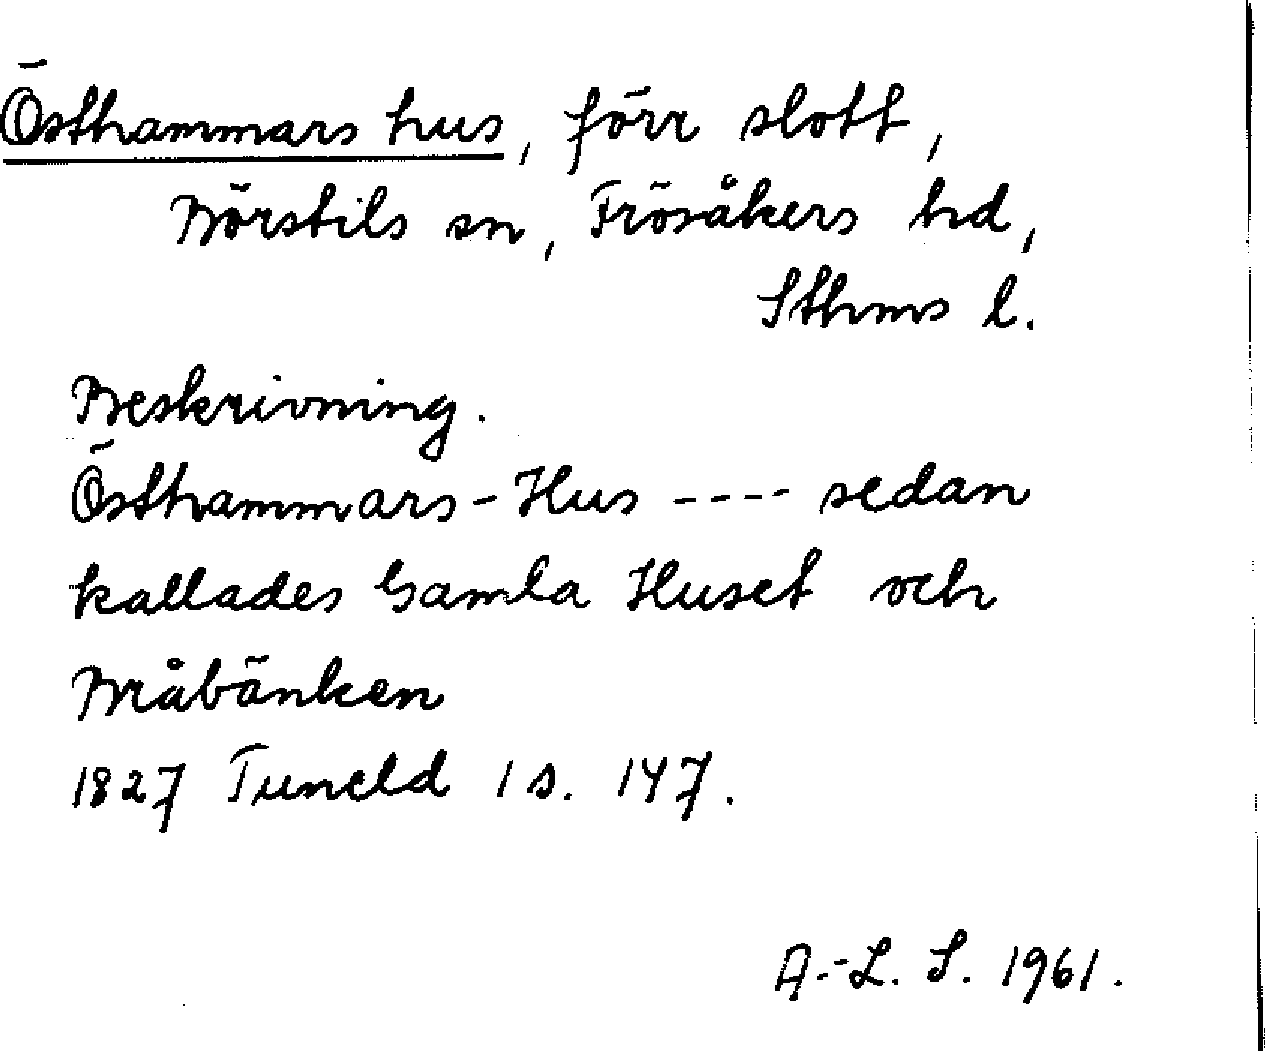 Östhammars hus, förr slott,
Börstils sn, Frösåkers hd,
Sthms l.
Beskrivning.
Östhammars-Hus ---- sedan
kallades Gamla Huset och
Bråbänken
1827 Tuneld 1 s. 147.
A.-L. S. 1961.